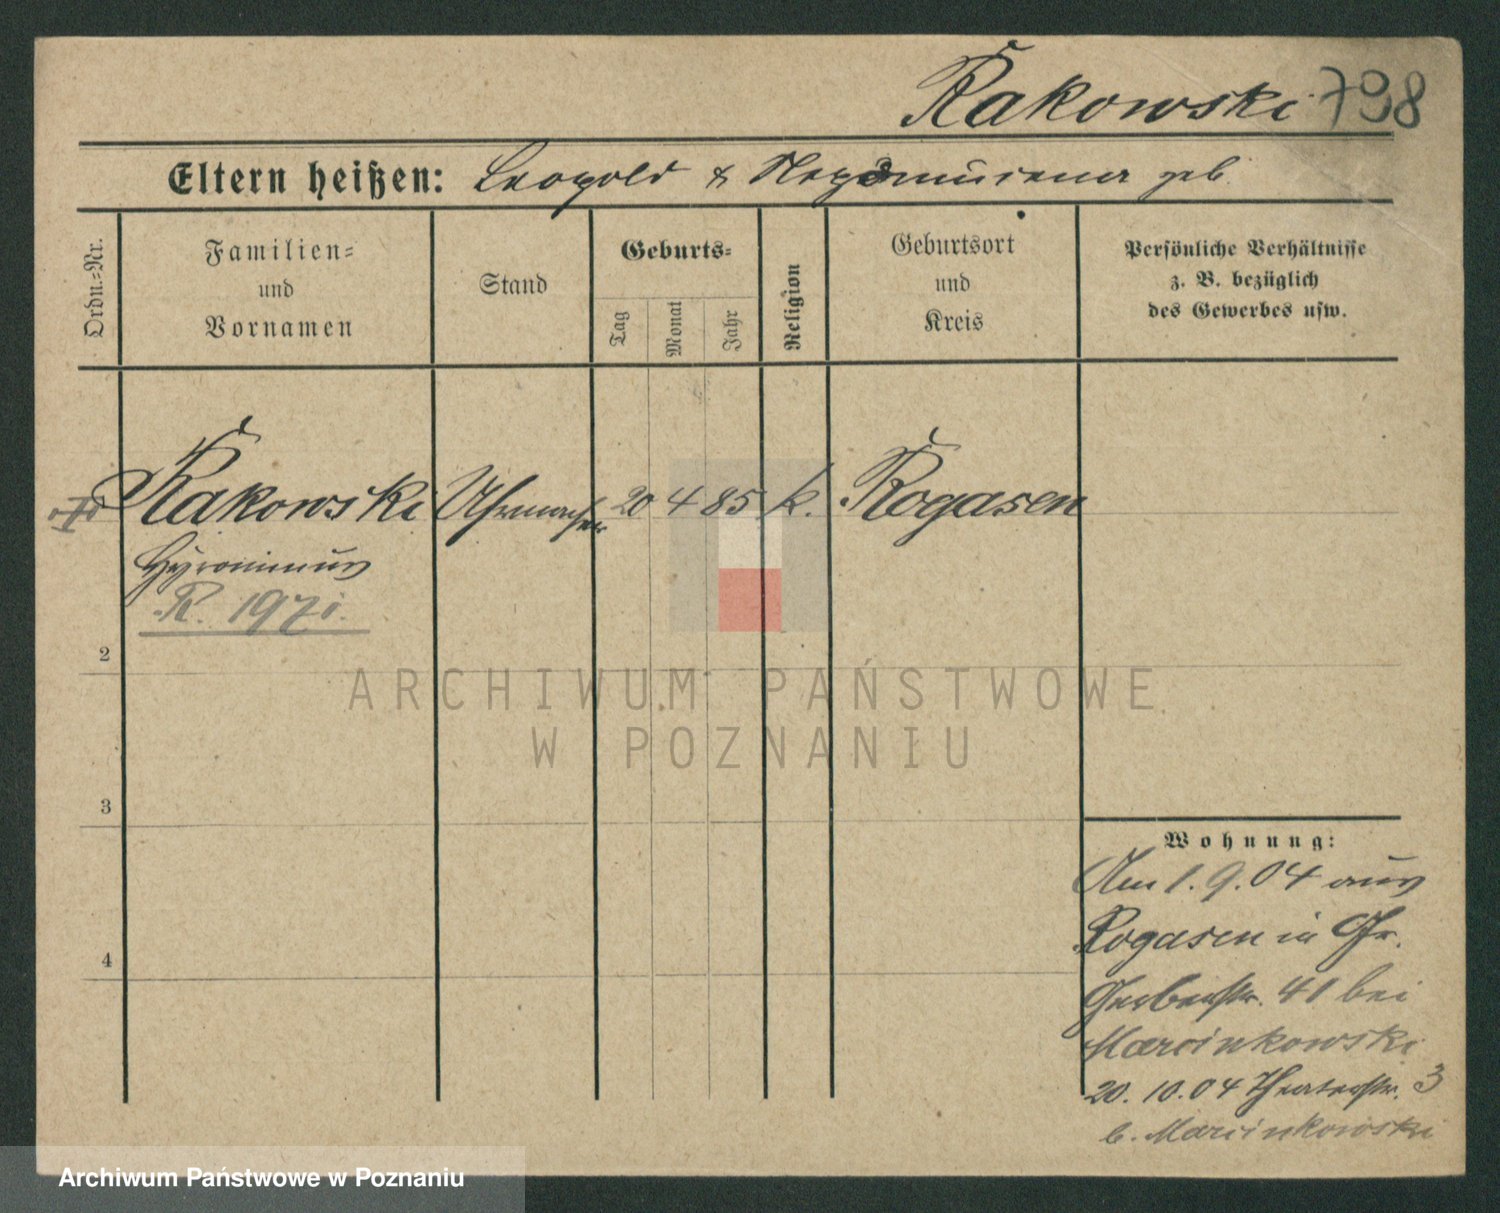 Rakowski 798
Eltern heißen: Leopold & Nepomucena geb.
Ordn.-Nr.
Familien- und Vornamen
Stand
Geburts-
Tag
Monat
Jahr
Religion
Geburtsort
und
Kreis
Persönliche Verhältnisse
z. B. bezüglich
des Gewerbes usw.
Rakowski Uhrmacher 20 4 85 k. Rogasen
Hyronimus
R. 1971.
2
3
4
Wohnung:
Am 1. 9. 04 aus
Rogasen in Gr.
Gerberstr. 41 bei
Marcinkowski
20. 10. 04 Theaterstr. 3
b. Marcinkowski
ARCHIWUM PAŃSTWOWE
W POZNANIU
Archiwum Państwowe w Poznaniu